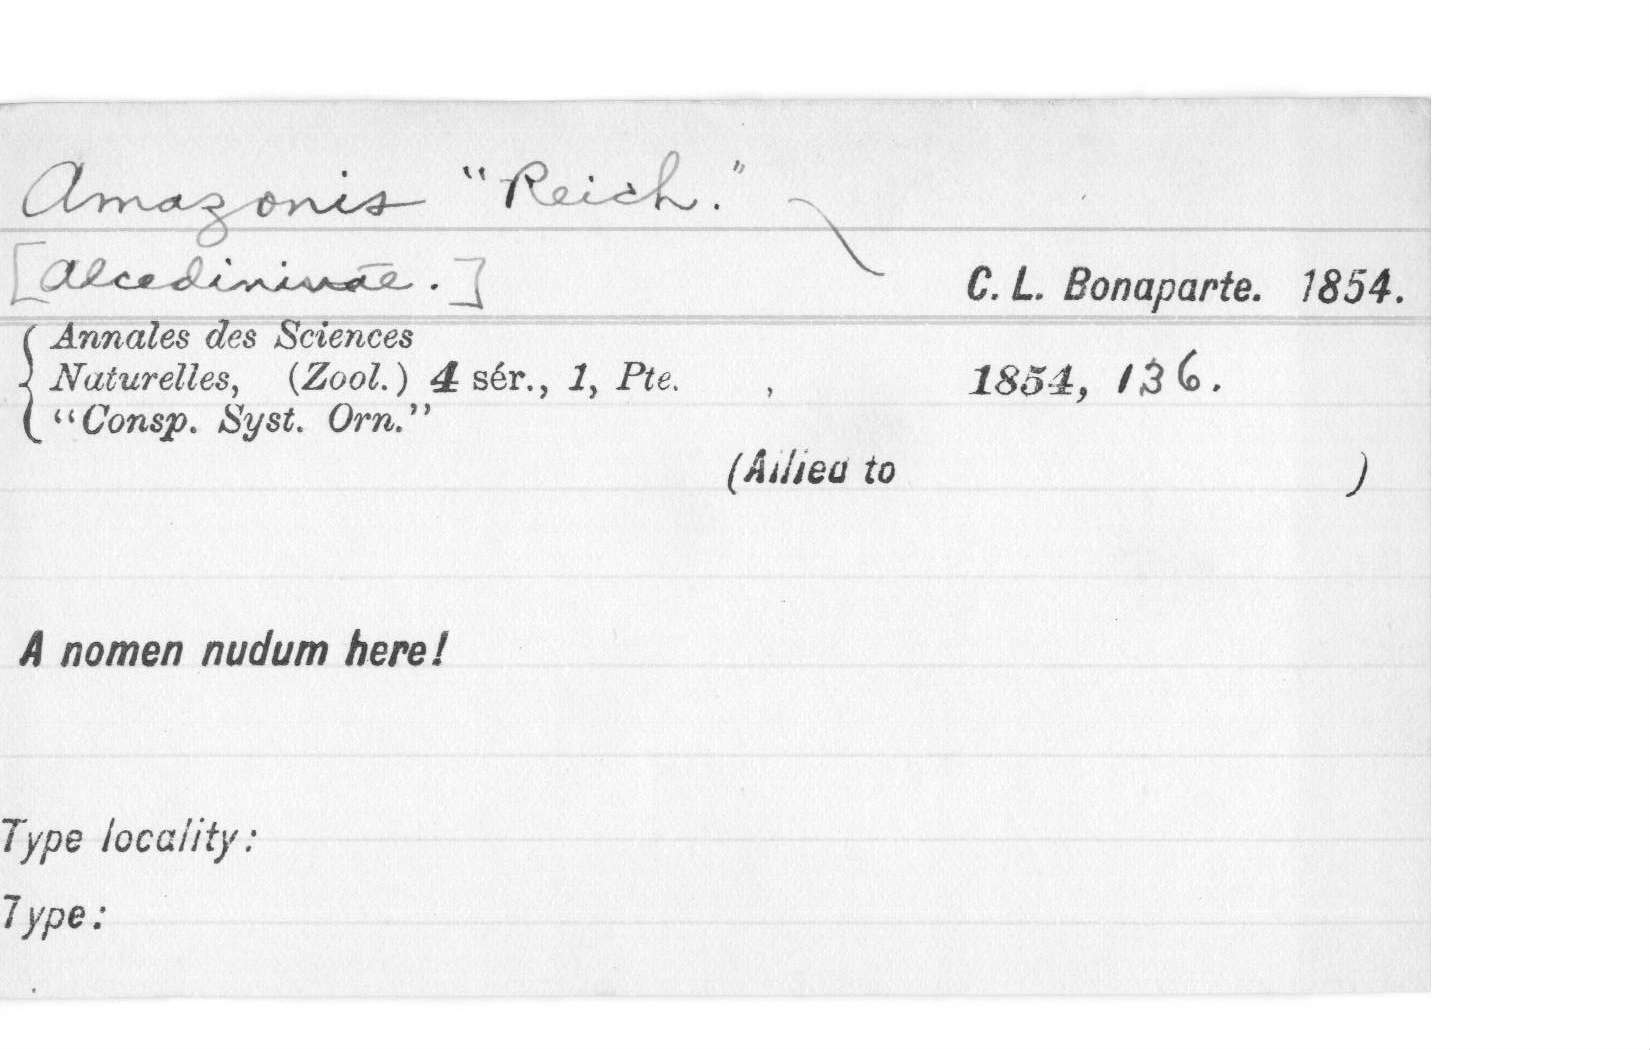 Amazonis "Reich."
[Alcedininae.] C. L. Bonaparte. 1854.
Annales des Sciences
Naturelles, (Zool.) 4 sér., 1, Pte. , 1854, 136.
"Consp. Syst. Orn."
(Allied to )
A nomen nudum here!
Type locality:
Type: